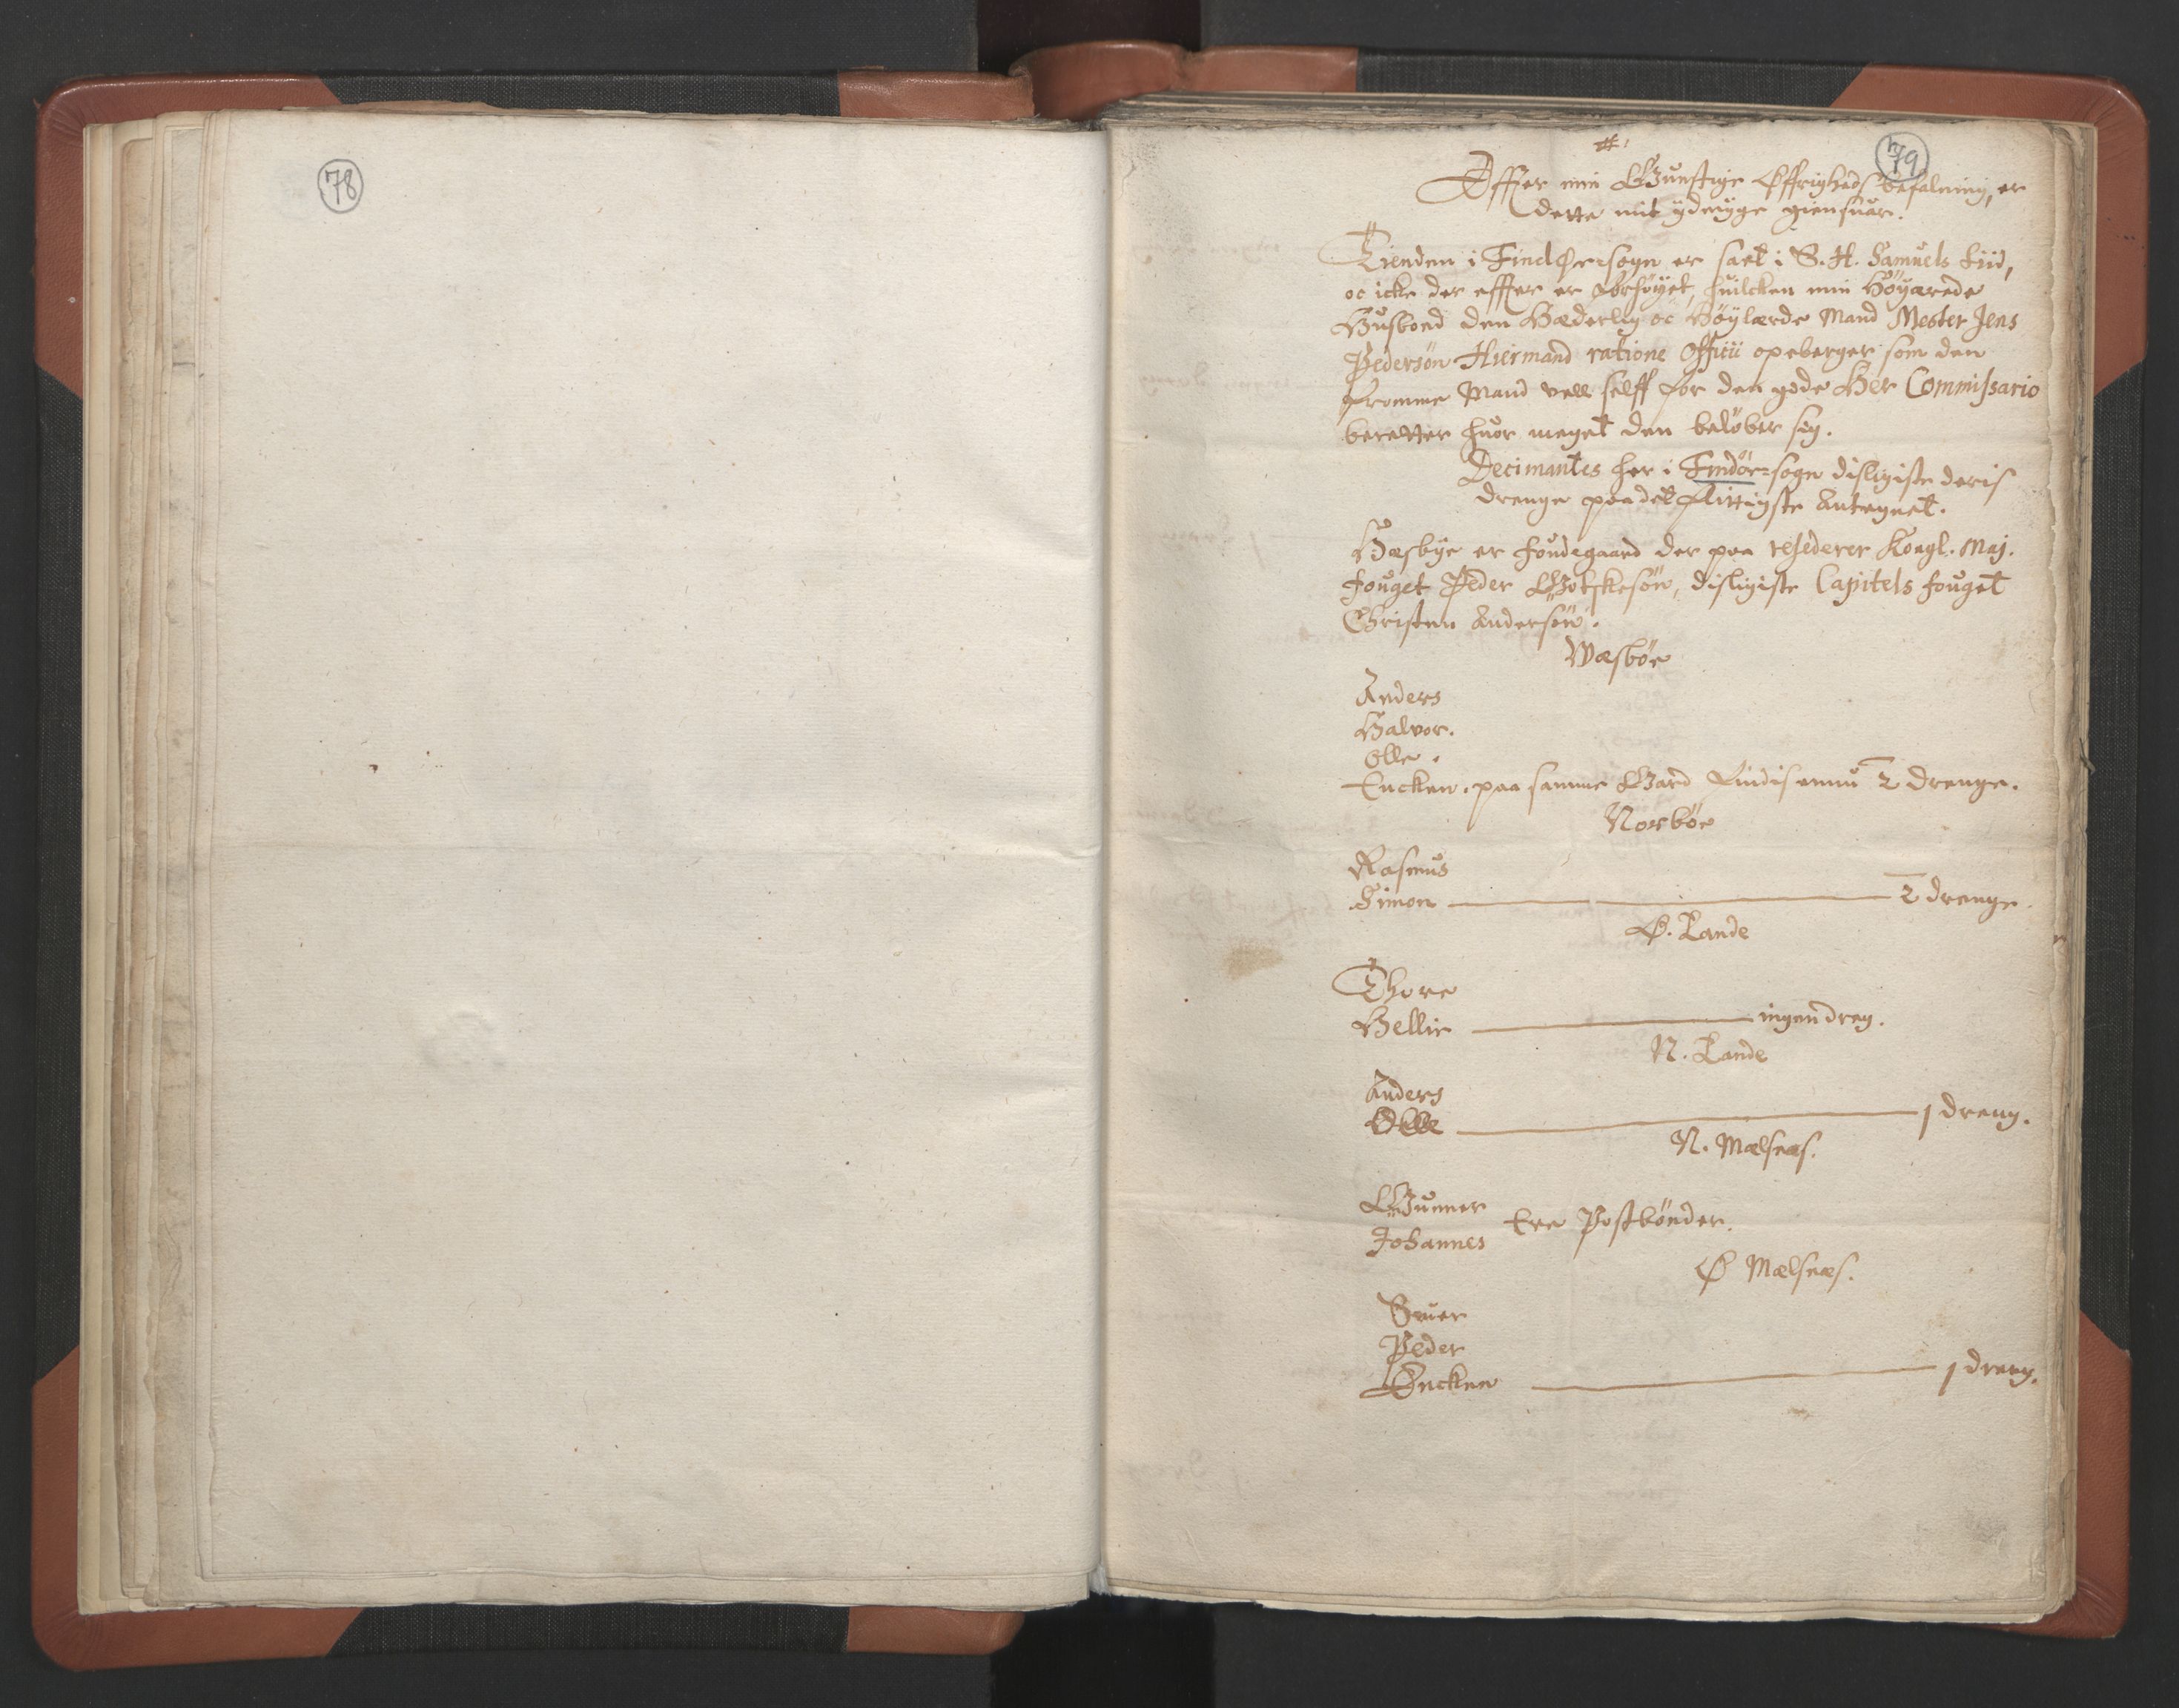 78
79
Effter min Gunstige Øffrigheds befalning, er
dette mit ydmyge giensuar.
Tienden i Findøe-sogn er sæt i S. H. Samuels tiid,
oc icke der effter er forhøyet, huilcken min Høyærede
Husbond den Hæderlig oc Høylærde Mand Mester Jens
Pedersøn Hiermand ratione Officii opeberger som den
fromme Mand vell selff for den gode Her Commissario
beretter huor meget den beløber sig.
Decimantes her i Findøe-sogn disligiste deris
drenge paa det flittigste Antegnet.
Hæsbye er foudegaard der paa resederer Kongl. Maj.
fouget Peder Gotskesøn, disligiste Capitels fouget
Christen Andersøn.
Wæsbøe
Anders
Halvor.
Olle.
Encken. paa samme Gard findis ennu 2 drenge.
Norbøe
Rasmus
Simon 2 drenge.
Ø. Lande
Thore
Hellie ingen dreng.
N. Lande
Anders
Olle 1 dreng.
N. Mælsnæs.
Gunner
Johannes Ere Postbønder.
Ø Mælsnæs.
Suer
Peder
Encken 1 dreng.